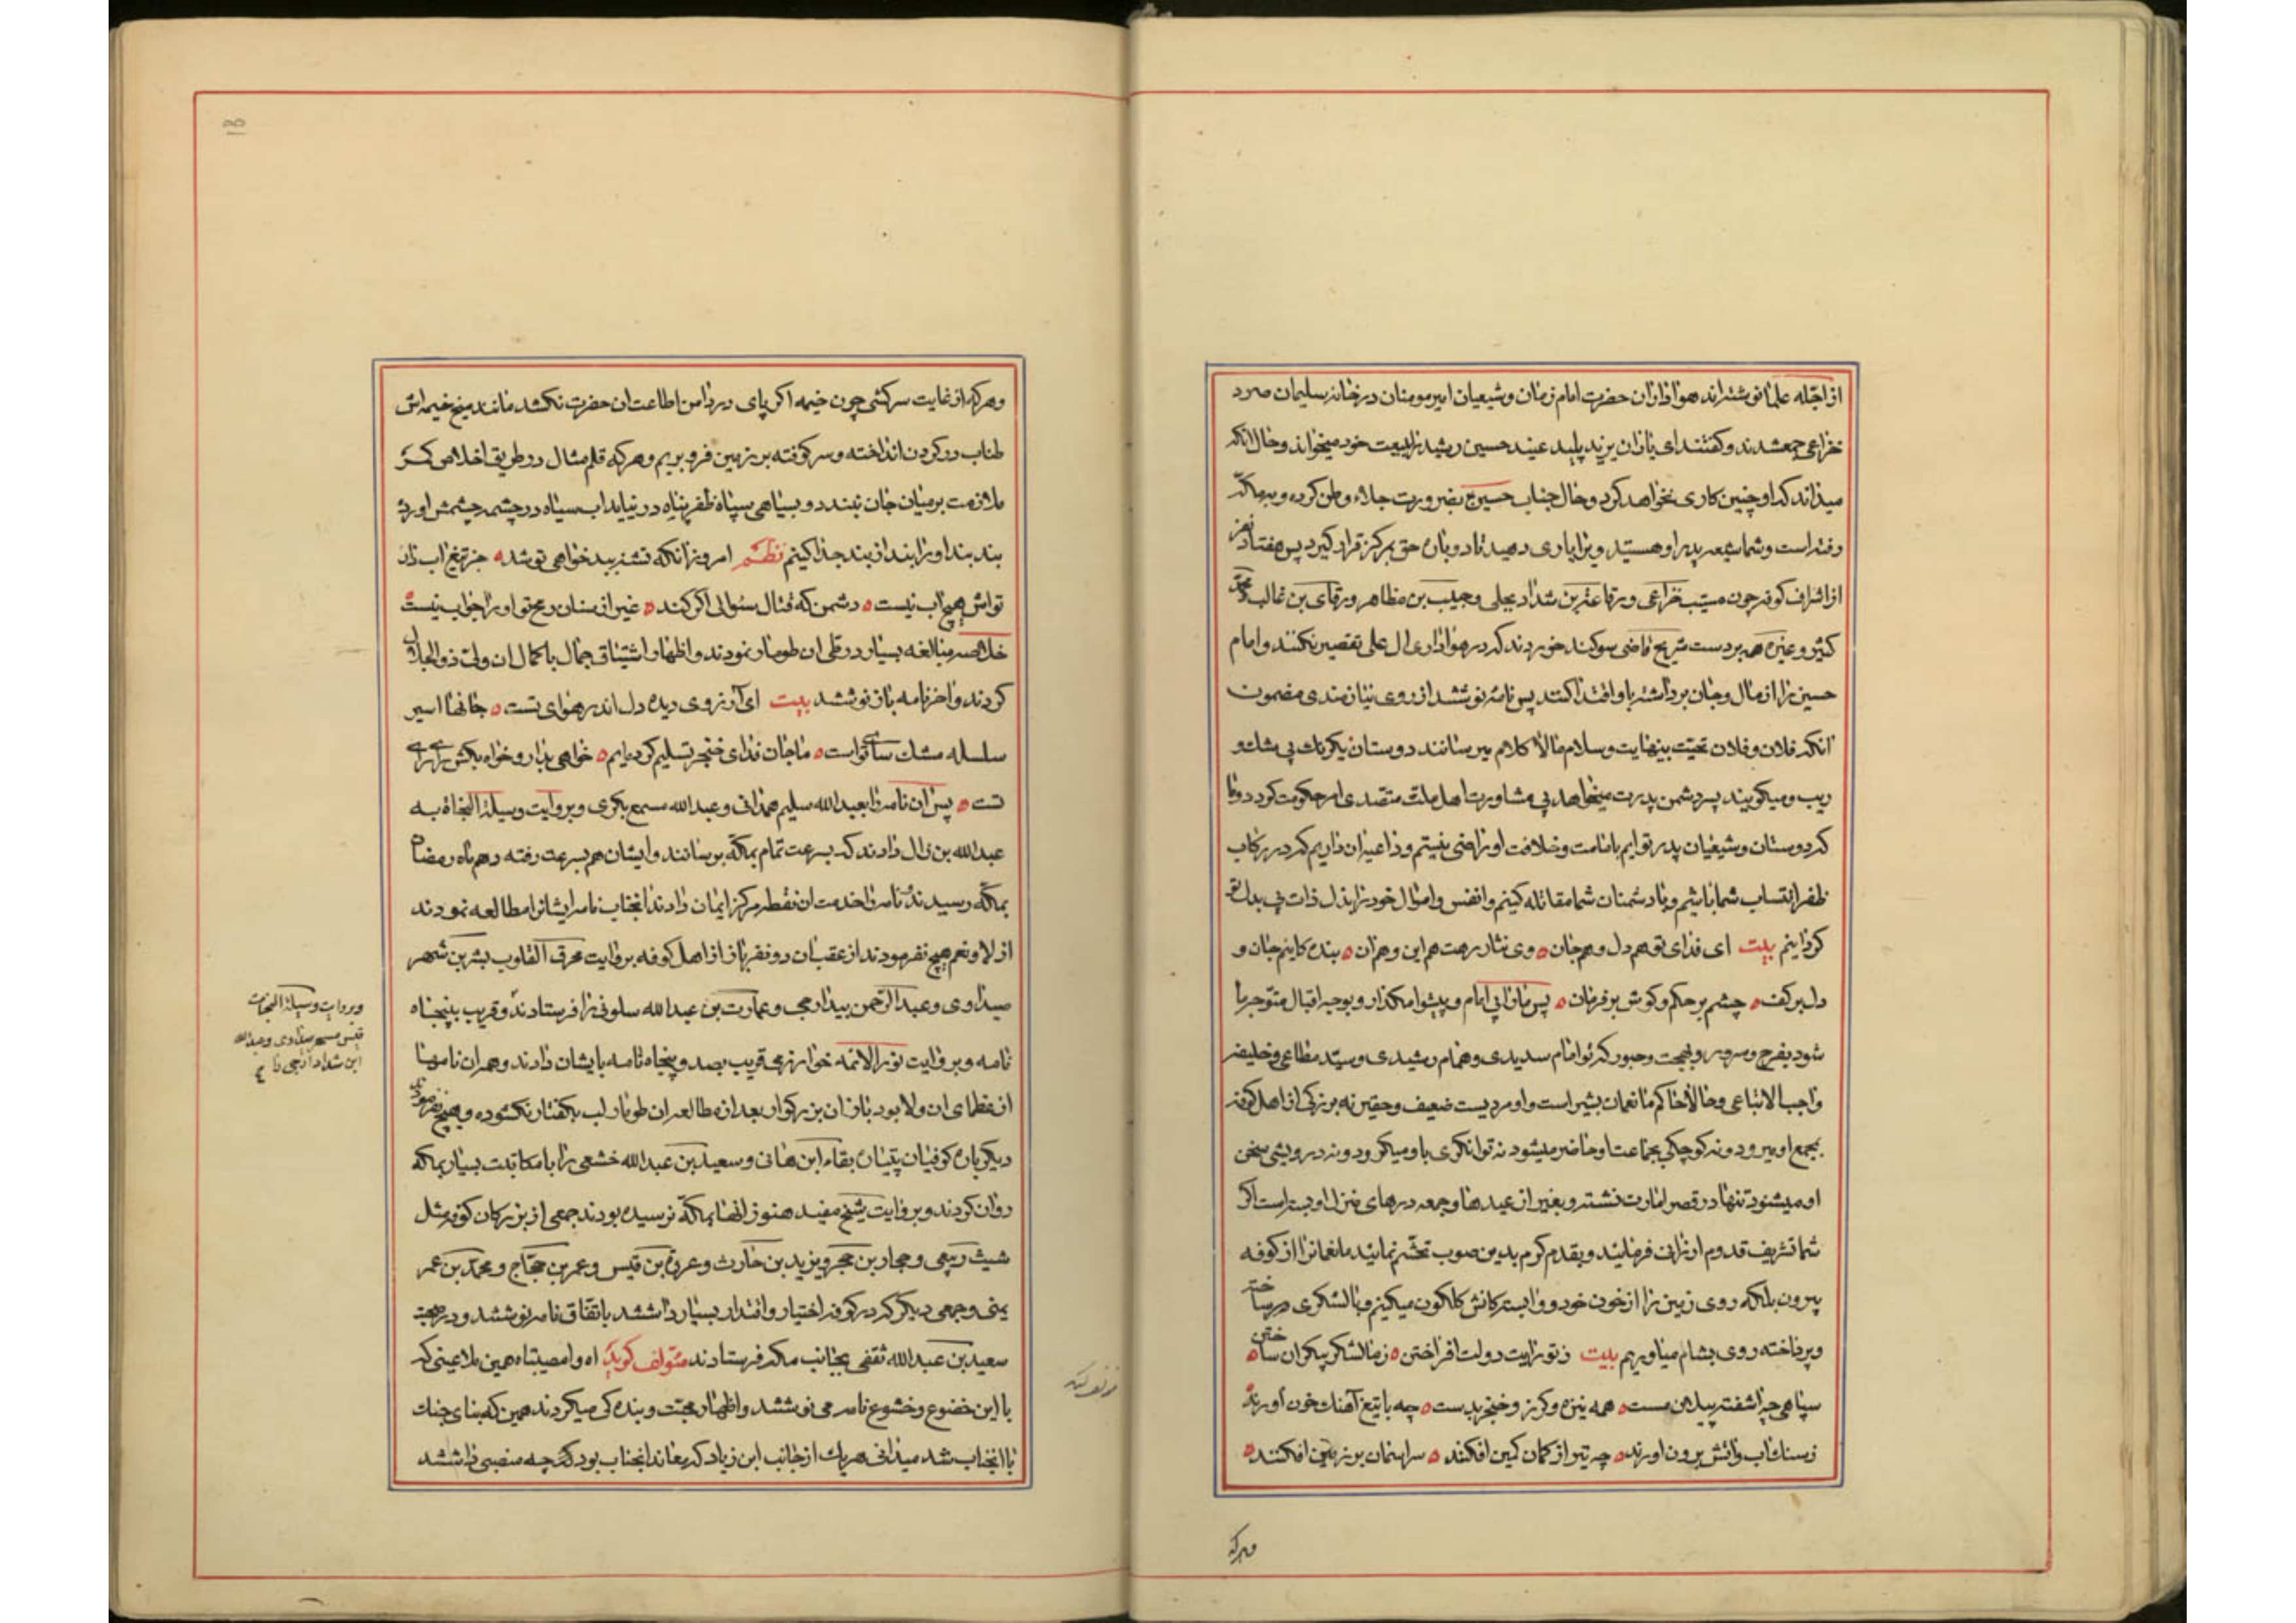 از اجّله علما نوشته‌اند هواداران حضرت امام زمان و شیعیان امیر مومنان در خانه سلیمان صرد
خزاعی جمع شدند و گفتند ای یاران یزید پلید عنید حسین رشید را ببیعت خود میخواند و حال انکه
میداند که او چنین کاری نخواهد کرد و حال جناب حسین ع بضرورت جلاء وطن کرده و بمکه
رفته است و شما شیعه پدر او هستید ویرا یاری دهید تا دوباره حق بمرکز قرار گیرد پس هفتاد نفر
از اشراف کوفه چون مسیّب خزاعی و رفاعة بن شداد بجلی و حبیب بن مظاهر و ورقای بن غالب و محمد
کثیر و غیره همه بر دست شریح قاضی سوکند خوردند که در هواداری ال علی تقصیر نکنند و امام
حسین را از مال و جان برداشته باو اقتدا کنند پس نامه نوشتند از روی نیازمندی مضمون
انکه فلان و فلان تحیّت بینهایت و سلام مالا کلام میرسانند دوستان یکرنك بی شك و
ریب و میکویند پسر دشمن پدرت میخواهد بی مشاورت اهل ملت متصّدی امر حکومت کردد و ما
که دوستان و شیعیان پدر توایم بامامت و خلافت او راضی نیستیم و داعیه ان داریم که در رکاب
ظفر انتساب شما باشیم و با دشمنان شما مقاتله کنیم و انفس و اموال خود را بذل ذات بی بدل تو
کردانیم بیت ای فدای تو هم دل و هم جان ه وی نثار رهت هم این و هم ان ه بنده کانیم جان و
دل بر کف ه چشم بر حکم و کوش بر فرمان ه پس ما را بی امام و پیشوا مکذار و بوجه اقبال متوّجه ما
شود بفرح و سرور و بهجت و حبور که تو امام سدیدی و همام رشیدی و سیّد مطاعی و خلیفه
واجب الاتباعی و حالا حاکم ما نعمان بشیر است و او مردیست ضعیف و حقیر نه بزرکی از اهل کوفه
بجمع او میرود و نه کوچکی بجماعت او حاضر میشود نه توانکری باو میکرود و نه درویشی سخن
او میشنود تنها در قصر امارت نشسته و بغیر از عیدها و جمعه درهای منزل او بسته است اکر
شما تشریف قدوم ارزانی فرمائید و بقدم کرم بدین صوب تجشّم نمائید ما نعمانرا از کوفه
بیرون بلکه روی زمین را از خون خود و وابستکانش کلکون میکنیم و با لشکری مر ساخته
و پرداخته روی بشام میاوریم بیت ز تو رایت دولت افراختن ه ز ما لشکر بیکران ساختن ه
سپاهی چه اشفته پیلان مست ه همه نیزه و کرز و خنجر بدست ه چه با تیغ آهنك خون آورند
ز سنك اب و اتش برون اورند ه چه تیر از کمان کین افکنند ه سر اسمان بر زمین افکنند ه
و هر که
و هر که از غایت سرکشی چون خیمه اکر پای در دامن اطاعت ان حضرت نکشد مانند میخ خیمه اش
طناب در کردن انداخته و سر کوفته بر زمین فرو بریم و هر که قلم مثال در طریق اخلاص کمر
ملازمت بر میان جان نبندد و بسیاهی سپاه ظفر پناه در نیاید اب سیاه در چشمه چشمش اورد
بند بند او را بند از بند جدا کنیم نظم امروز انکه تشنه ببد خواهی تو شد ه جز تیغ اب دار
تواش هیچ اب نیست ه دشمن که قتال سئوالی اکر کند ه غیر از سنان رمح تو او را جواب نیست
خلاصه مبالغه بسیار در طی ان طومار نمودند و اظهار اشتیاق جمال با کمال ان ولی ذو الجلال
کردند و اخر نامه باز نوشتند بیت ای آرزوی دیده دل اندر هوای تست ه جانها اسیر
سلسله مشك سای تو است ه ما جان فدای خنجر تسلیم کرده‌ایم ه خواهی بدار و خواه بکش رای رای
تست ه پس ان نامه را بعبدالله سلیم همدانی و عبدالله مسمع بکری و بروایت وسیلة النجاة به
عبدالله بن وال دادند که بسرعت تمام بمکّه برسانند و ایشان هم بسرعت رفته دهم ماه رمضان
بمکّه رسیدند نامه را خدمت ان نقطه مرکز ایمان دادند انجناب نامه ایشانرا مطالعه نمودند
از لا و نعم هیچ نفرمودند از عقب ان دو نفر باز از اهل کوفه بروایت محرق القلوب بشر بن شهر
صیداوی و عبد الرّحمن بیدارحجی و عمارت بن عبدالله سلونی را فرستادند و قریب بپنجاه
نامه و بروایت نور الائمه خوارزمی قریب بصد و پنجاه نامه بایشان دادند و همه ان نامها
از عظمای ان ولا بود باز ان بزرکوار بعد از مطالعه ان طومار لب بکفتار نکشوده و هیچ نفرمودند
دیکر باره کوفیان پتیاره بقاء ابن هانی و سعید بن عبدالله خثعمی را با مکاتبت بسیار بمکه
روان کردند و بروایت شیخ مفید هنوز انها بمکّه نرسیده بودند جمعی از بزرکان کوفه مثل
شیث ربیعی و حجار بن حجر و یزید بن حارث و عروه بن قیس و عمر بن حجّاج و محمّد بن عمر
یمنی و جمعی دیکر که در کوفه اختیار و اقتدار بسیار داشتند باتفاق نامه نوشتند و در صحبت
سعید بن عبدالله ثقفی بجانب مکه فرستادند مئولف کوید اه وا مصیبتاه همین ملاعینی که
با این خضوع و خشوع نامه می نوشتند و اظهار محبّت و بنده کی میکردند همین که بنای جنك
با انجناب شد میدانی هر یك از جانب ابن زیاد که معاند انجناب بود که چه منصبی داشتند
و بروایت وسیلة النجات
قیس مسهر صیداوی و عبدالله
ابن شداد ارحبی را